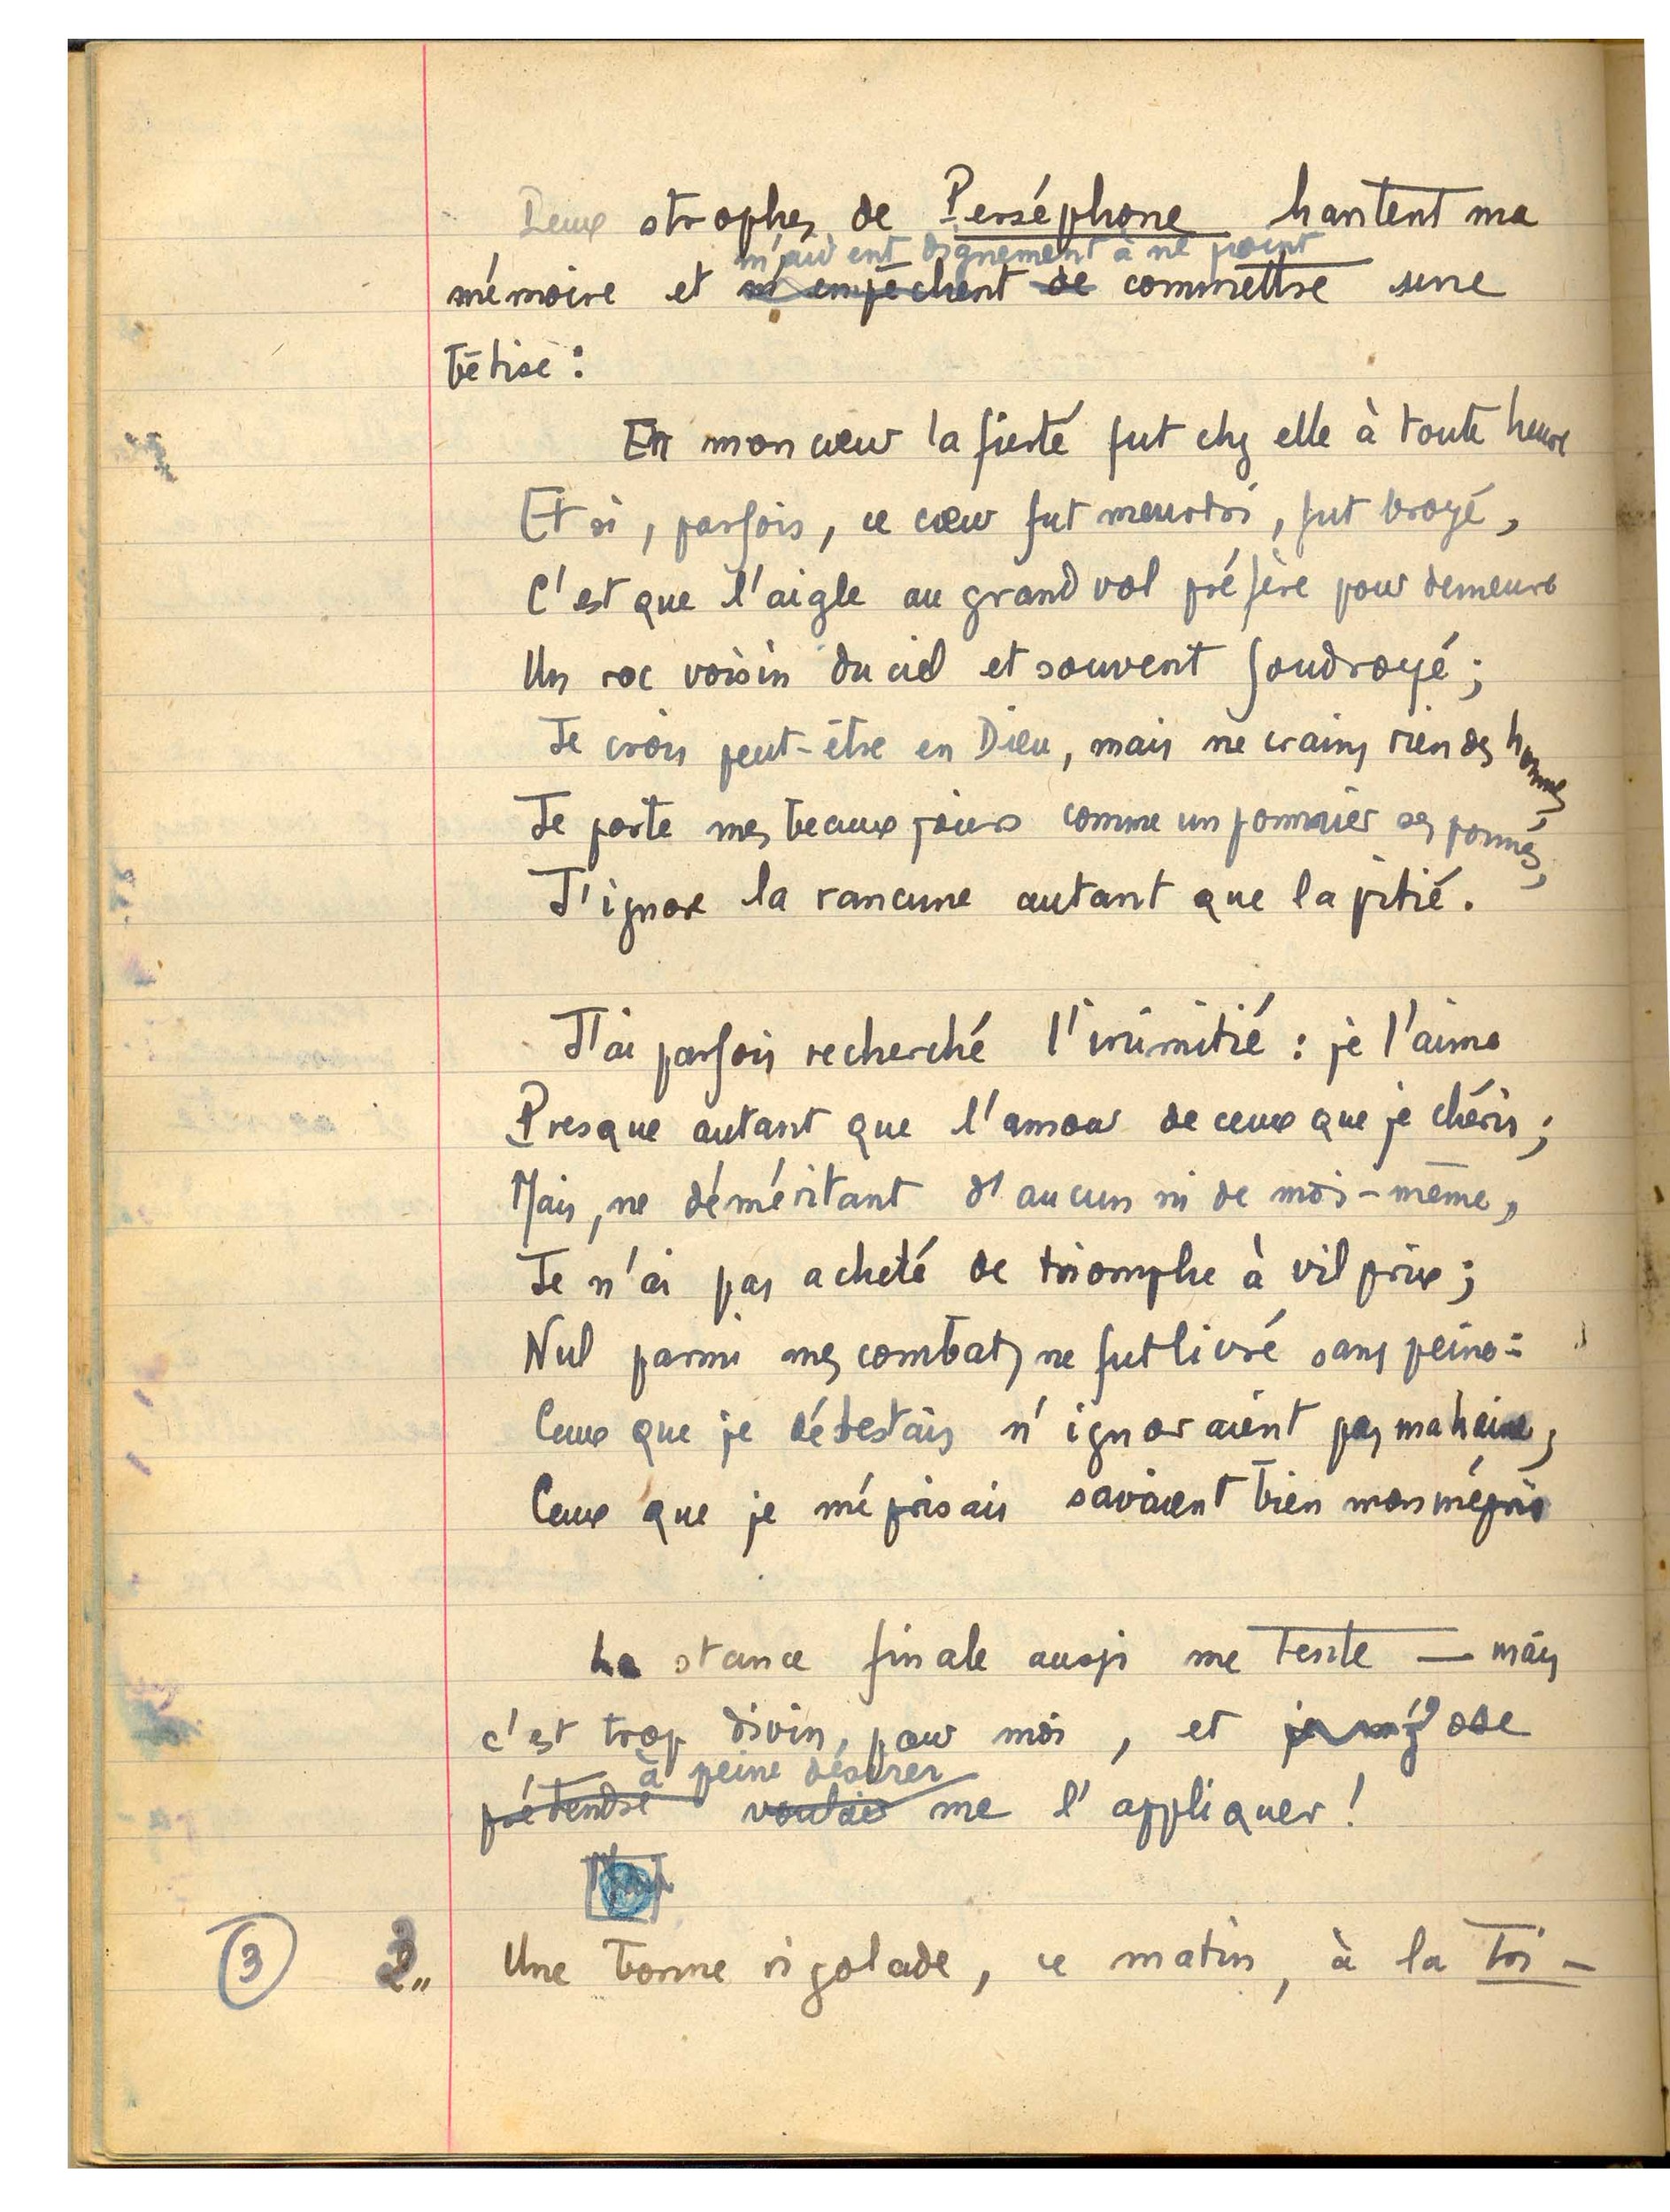 Deux strophes de Perséphone hantent ma
m'aident dignement à ne point
mémoire et m'empêchent de commettre une
bêtise :
En mon cœur la fierté fut chez elle à toute heure
Et si, parfois, ce cœur fut meurtri, fut broyé,
C'est que l'aigle au grand vol préfère pour demeure
Un roc voisin du ciel et souvent foudroyé ;
Je crois peut-être en Dieu, mais ne crains rien des hommes,
Je porte mes beaux jours comme un pommier ses pommes,
J'ignore la rancune autant que la pitié.
J'ai parfois recherché l'inimitié : je l'aime
Presque autant que l'amour de ceux que je chéris ;
Mais, ne déméritant d'aucun ni de moi-même,
Je n'ai pas acheté de triomphe à vil prix ;
Nul parmi mes combats ne fut livré sans peine :
Ceux que je détestais n'ignoraient pas ma haine,
Ceux que je méprisais savaient bien mon mépris
La stance finale aussi me tente — mais
c'est trop divin, pour moi, et ose
à peine désirer
prétendre vouloir me l'appliquer !
3 Une bonne rigolade, ce matin, à la Tri-